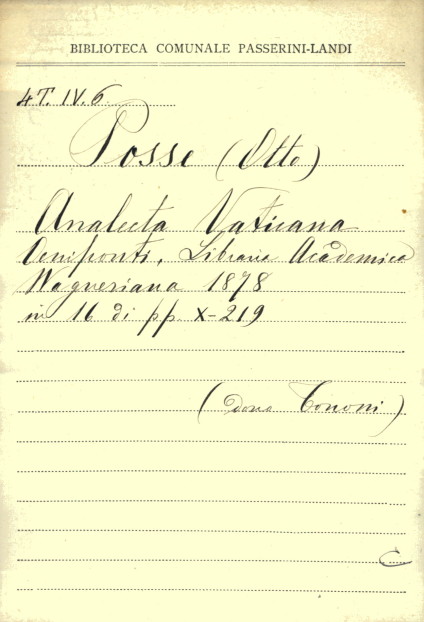 BIBLIOTECA COMUNALE PASSERINI-LANDI
4T. IV. 6
Posse (Otto)
Analecta Vaticana
Oeniponti, Libraria Academica
Wagneriana 1878
in 16 di pp. X-219
(dono Tononi)
C